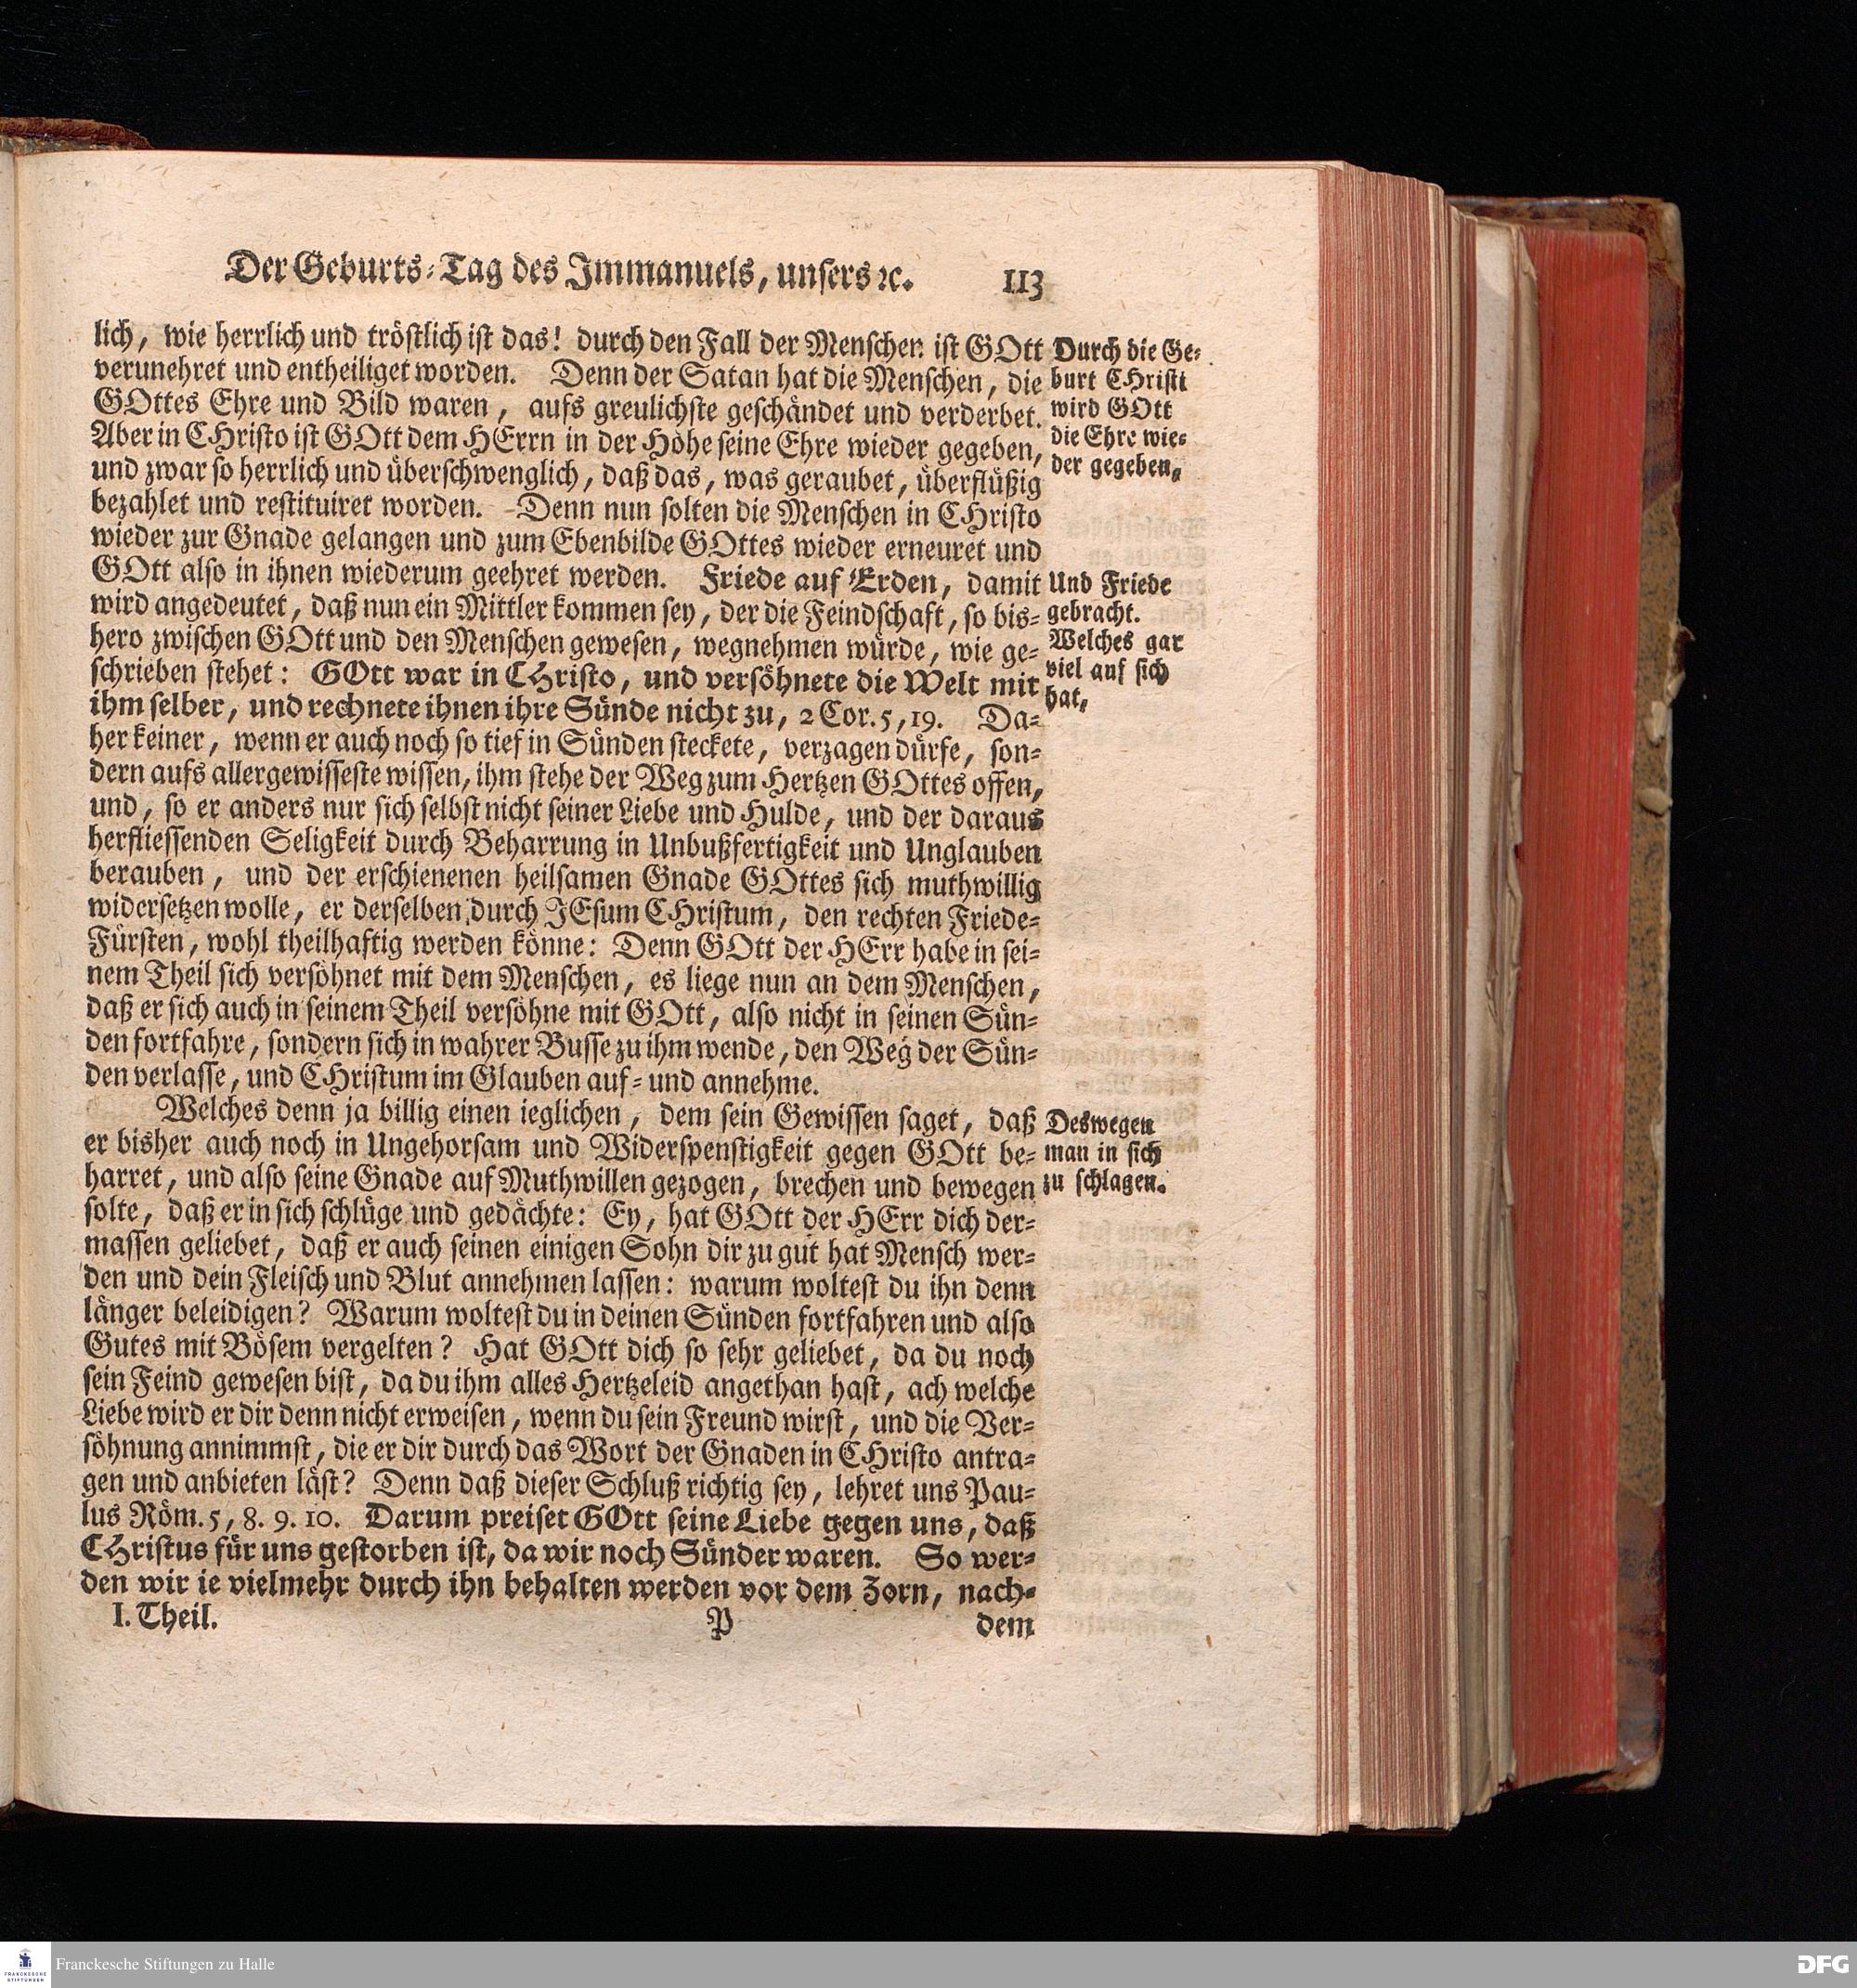 Der Geburts-Tag des Immanuels, unsers ꝛc. 113
lich, wie herrlich und tröstlich ist das! durch den Fall der Menschen ist GOtt
verunehret und entheiliget worden. Denn der Satan hat die Menschen, die
GOttes Ehre und Bild waren, aufs greulichste geschändet und verderbet.
Aber in CHristo ist GOtt dem HErrn in der Höhe seine Ehre wieder gegeben,
und zwar so herrlich und überschwenglich, daß das, was geraubet, überflüßig
bezahlet und restituiret worden. Denn nun solten die Menschen in CHristo
wieder zur Gnade gelangen und zum Ebenbilde GOttes wieder erneuret und
GOtt also in ihnen wiederum geehret werden. Friede auf Erden, damit
wird angedeutet, daß nun ein Mittler kommen sey, der die Feindschaft, so bis-
hero zwischen GOtt und den Menschen gewesen, wegnehmen würde, wie ge-
schrieben stehet: GOtt war in CHristo, und versöhnete die Welt mit
ihm selber, und rechnete ihnen ihre Sünde nicht zu, 2 Cor. 5, 19. Da-
her keiner, wenn er auch noch so tief in Sünden steckete, verzagen dürfe, son-
dern aufs allergewisseste wissen, ihm stehe der Weg zum Hertzen GOttes offen,
und, so er anders nur sich selbst nicht seiner Liebe und Hulde, und der daraus
herfliessenden Seligkeit durch Beharrung in Unbußfertigkeit und Unglauben
berauben, und der erschienenen heilsamen Gnade GOttes sich muthwillig
widersetzen wolle, er derselben durch JEsum CHristum, den rechten Friede-
Fürsten, wohl theilhaftig werden könne: Denn GOtt der HErr habe in sei-
nem Theil sich versöhnet mit dem Menschen, es liege nun an dem Menschen,
daß er sich auch in seinem Theil versöhne mit GOtt, also nicht in seinen Sün-
den fortfahre, sondern sich in wahrer Busse zu ihm wende, den Weg der Sün-
den verlasse, und CHristum im Glauben auf- und annehme.
Welches denn ja billig einen ieglichen, dem sein Gewissen saget, daß
er bisher auch noch in Ungehorsam und Widerspenstigkeit gegen GOtt be-
harret, und also seine Gnade auf Muthwillen gezogen, brechen und bewegen
solte, daß er in sich schlüge und gedächte: Ey, hat GOtt der HErr dich der-
massen geliebet, daß er auch seinen einigen Sohn dir zu gut hat Mensch wer-
den und dein Fleisch und Blut annehmen lassen: warum woltest du ihn denn
länger beleidigen? Warum woltest du in deinen Sünden fortfahren und also
Gutes mit Bösem vergelten? Hat GOtt dich so sehr geliebet, da du noch
sein Feind gewesen bist, da du ihm alles Hertzeleid angethan hast, ach welche
Liebe wird er dir denn nicht erweisen, wenn du sein Freund wirst, und die Ver-
söhnung annimmst, die er dir durch das Wort der Gnaden in CHristo antra-
gen und anbieten läst? Denn daß dieser Schluß richtig sey, lehret uns Pau-
lus Röm. 5, 8. 9. 10. Darum preiset GOtt seine Liebe gegen uns, daß
CHristus für uns gestorben ist, da wir noch Sünder waren. So wer-
den wir ie vielmehr durch ihn behalten werden vor dem Zorn, nach-
I. Theil. P dem
Durch die Ge-
burt CHristi
wird GOtt
die Ehre wie-
der gegeben,
Und Friede
gebracht.
Welches gar
viel auf sich
hat,
Deswegen
man in sich
zu schlagen.
FRANCKESCHE
STIFTUNGEN
Franckesche Stiftungen zu Halle
DFG